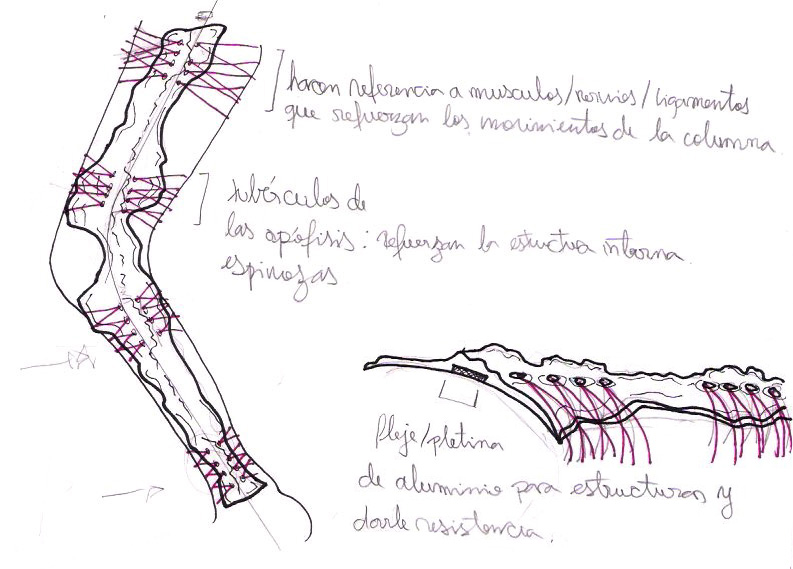 hacen referencia a musculos/nervios/ligamentos
que refuerzan los movimientos de la columna.
tubérculos de
las apófisis : refuerzan la estructura interna.
espinozas
fleje/pletina
de aluminio para estructuras y
darle resistencia.